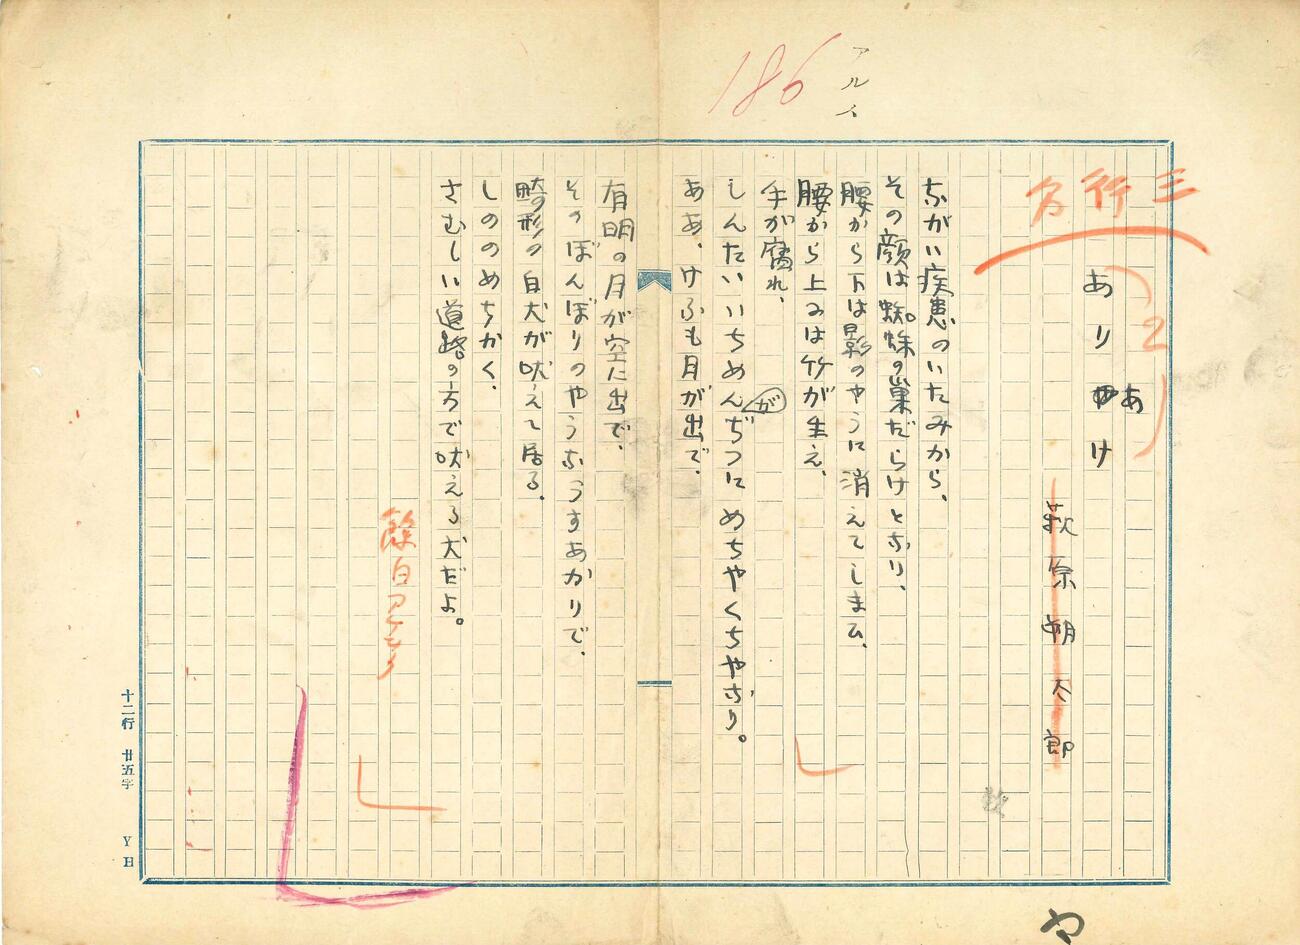 アルス
186
三行分
(2)
ありあけ
萩原朔太郎
ながい疾患のいたみから、
その顔は蜘蛛の巣だらけとなり、
腰から下は影のやうに消えてしまひ、
腰から上には竹が生え、
手が腐れ、
しんたいいちめんがぢつにめちやくちやなり。
ああ、けふも月が出で、
有明の月が空に出で、
そのぼんぼりのやうなうすあかりで、
畸形の白犬が吠えて居る、
しののめちかく、
さむしい道路の方で吠える犬だよ。
餘白アケル
十二行 廿五字 Y日